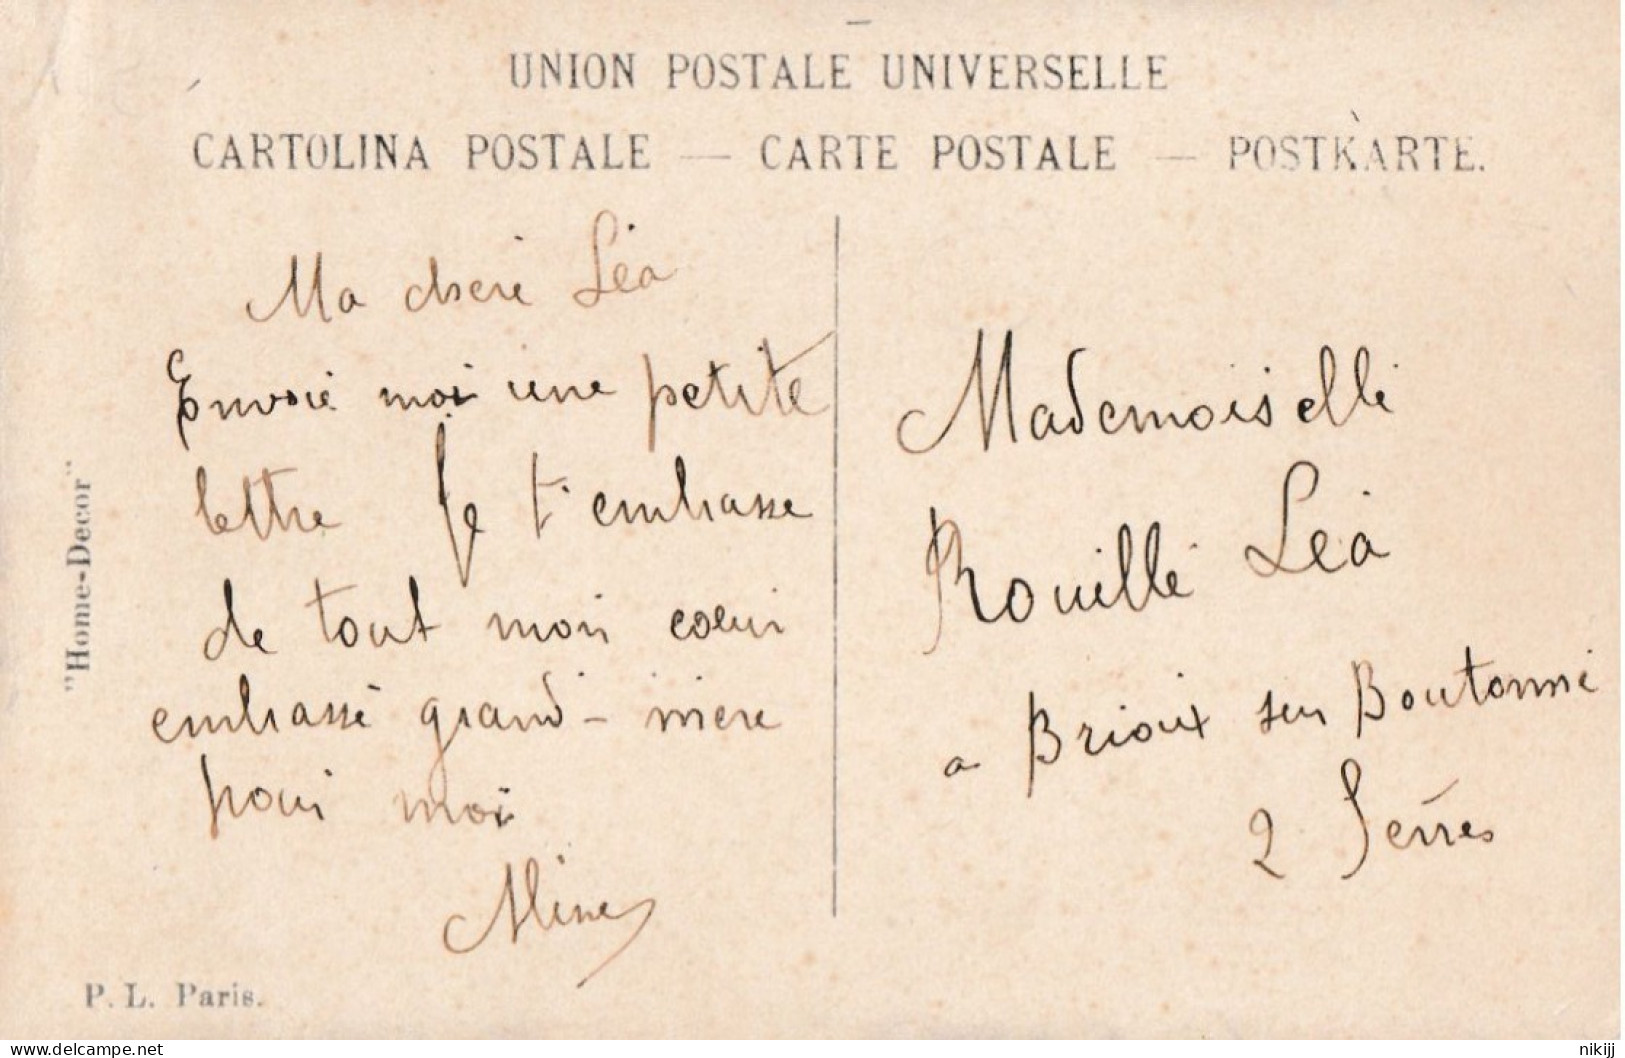 UNION POSTALE UNIVERSELLE
CARTOLINA POSTALE — CARTE POSTALE — POSTKARTE.
Ma chere Léa
Envoie moi une petite
lettre Je t'embrasse
de tout mon cœur
embrasse grand-mère
pour moi
Aline
Mademoiselle
Rouillé Léa
a Brioux sur Boutonne
2 Sèvres
"Home-Decor"
P. L. Paris.
delcampe.net
nikijj